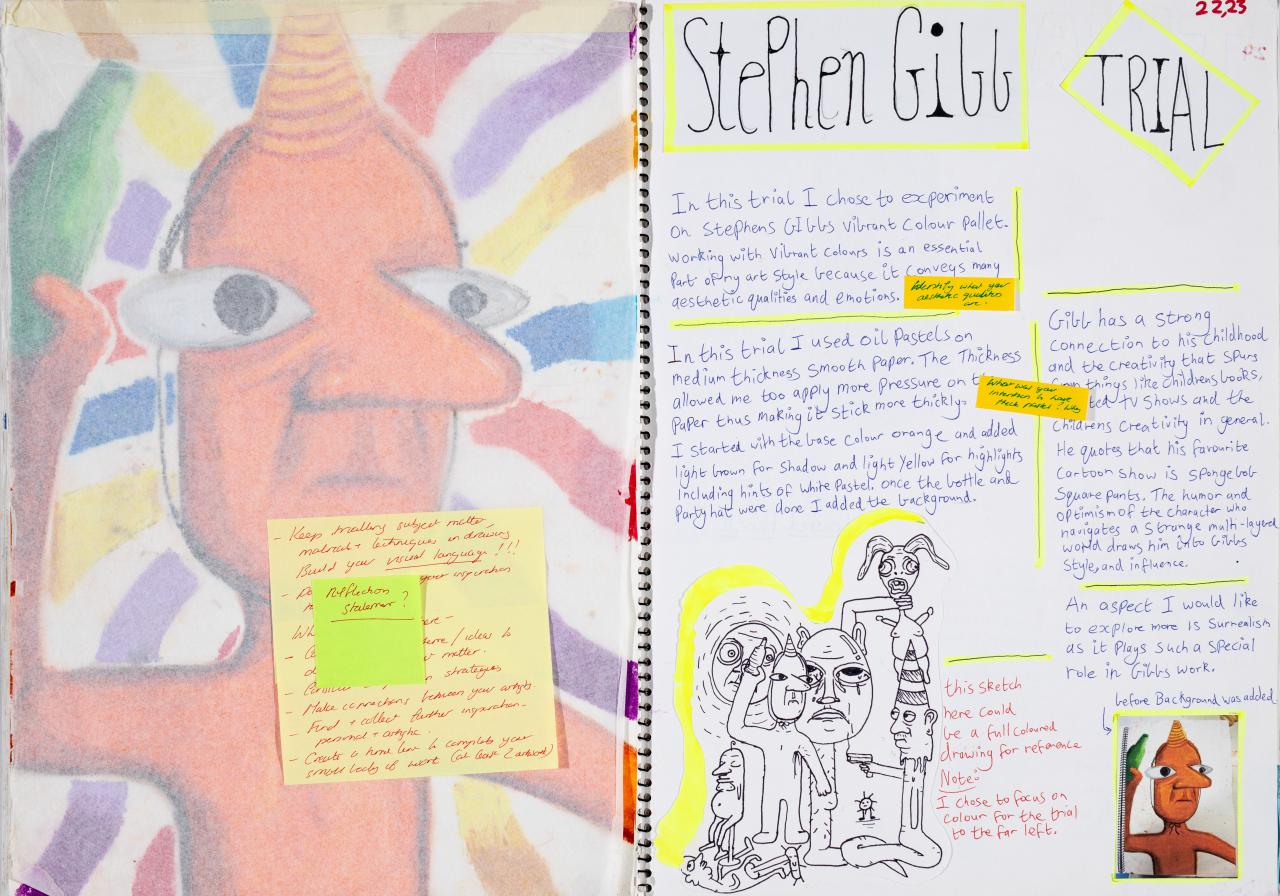 - Keep trialling subject matter,
materials + techniques in drawing
Build your visual language !!!
your inspiration
Reflection
statement ?
ideas to
matter.
strategies
- Make connections between your artists.
- Find + collect further inspiration -
personal + artistic.
- Create a time line to complete your
small body of work (at least 2 artworks)
Stephen Gibb
TRIAL
22,23
In this trial I chose to experiment
on Stephens GIbbs vibrant colour pallet.
working with vibrant colours is an essential
Part of my art style because it conveys many
aesthetic qualities and emotions.
Identify what your
aesthetic qualities
are.
In this trial I used oil Pastels on
medium thickness smooth paper. The Thickness
allowed me too apply more pressure on
Paper thus making it stick more thickly.
I started with the base colour orange and added
light brown for shadow and light Yellow for highlights
Including hints of white Pastel. once the bottle and
Party hat were done I added the background.
What was your
intention to have
thick pastel? Why
Gibb has a strong
connection to his childhood
and the creativity that spurs
things like childrens books,
TV Shows and the
childrens creativity in general.
He quotes that his favourite
cartoon show is spongebob
Square pants. The humor and
optimism of the character who
navigates a strange multi-layered
world draws him into Gibbs
Style, and influence.
An aspect I would like
to explore more is Surrealism
as it plays such a special
role in Gibbs work.
before Background was added.
this sketch
here could
be a full coloured
drawing for reference
Note:
I chose to focus on
colour for the trial
to the far left.